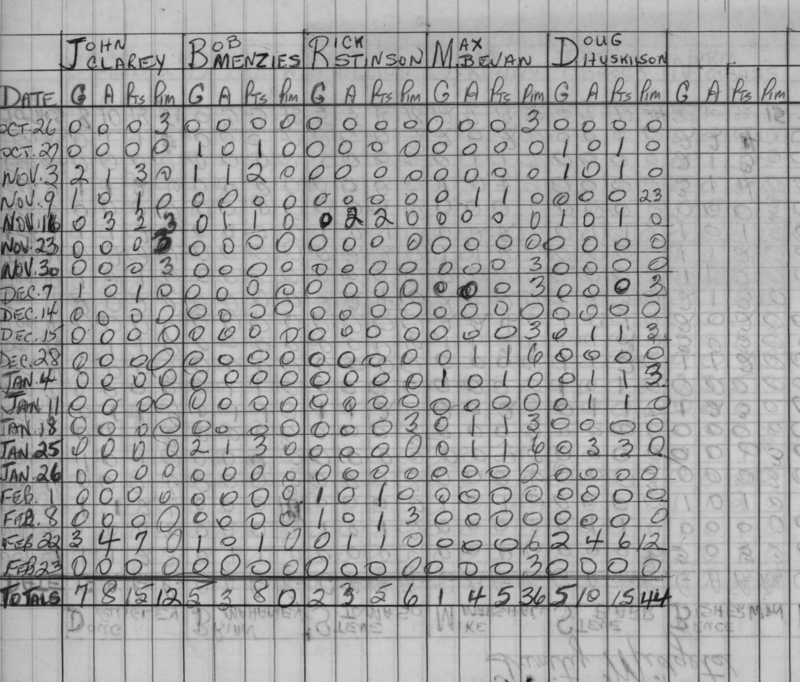 JOHN CLAREY BOB MENZIES RICK STINSON MAX BEVAN DOUG HUSKILSON
DATE G A Pts Pim G A Pts Pim G A Pts Pim G A Pts Pim G A Pts Pim G A Pts Pim
OCT.26 0 0 0 3 0 0 0 0 0 0 0 0 0 0 0 3 0 0 0 0
OCT.27 0 0 0 0 1 0 1 0 0 0 0 0 0 0 0 0 1 0 1 0
NOV.3 2 1 3 0 1 1 2 0 0 0 0 0 0 0 0 0 1 0 1 0
NOV.9 1 0 1 0 0 0 0 0 0 0 0 0 0 1 1 0 0 0 0 23
NOV.16 0 3 3 3 0 1 1 0 0 2 2 0 0 0 0 0 1 0 1 0
NOV.23 0 0 0 3 0 0 0 0 0 0 0 0 0 0 0 0 0 0 0 0
NOV.30 0 0 0 3 0 0 0 0 0 0 0 0 0 0 0 3 0 0 0 0
DEC.7 1 0 1 0 0 0 0 0 0 0 0 0 0 0 0 3 0 0 0 3
DEC.14 0 0 0 0 0 0 0 0 0 0 0 0 0 0 0 0 0 0 0 0
DEC.15 0 0 0 0 0 0 0 0 0 0 0 0 0 0 0 3 0 1 1 3
DEC.28 0 0 0 0 0 0 0 0 0 0 0 0 0 1 1 6 0 0 0 0
JAN.4 0 0 0 0 0 0 0 0 0 0 0 0 1 0 1 0 0 1 1 3
JAN 11 0 0 0 0 0 0 0 0 0 0 0 0 0 0 0 0 0 1 1 0
JAN.18 0 0 0 0 0 0 0 0 0 0 0 3 0 1 1 3 0 0 0 0
JAN.25 0 0 0 0 2 1 3 0 0 0 0 0 0 1 1 6 0 3 3 0
JAN.26 0 0 0 0 0 0 0 0 0 0 0 0 0 0 0 0 0 0 0 0
FEB.1 0 0 0 0 0 0 0 0 1 0 1 0 0 0 0 0 0 0 0 0
FEB.8 0 0 0 0 0 0 0 0 1 0 1 3 0 0 0 0 0 0 0 0
FEB 22 3 4 7 0 1 0 1 0 0 1 1 0 0 0 0 6 2 4 6 12
FEB 23 0 0 0 0 0 0 0 0 0 0 0 0 0 0 0 3 0 0 0 0
TOTALS 7 8 15 12 5 3 8 0 2 3 5 6 1 4 5 36 5 10 15 44